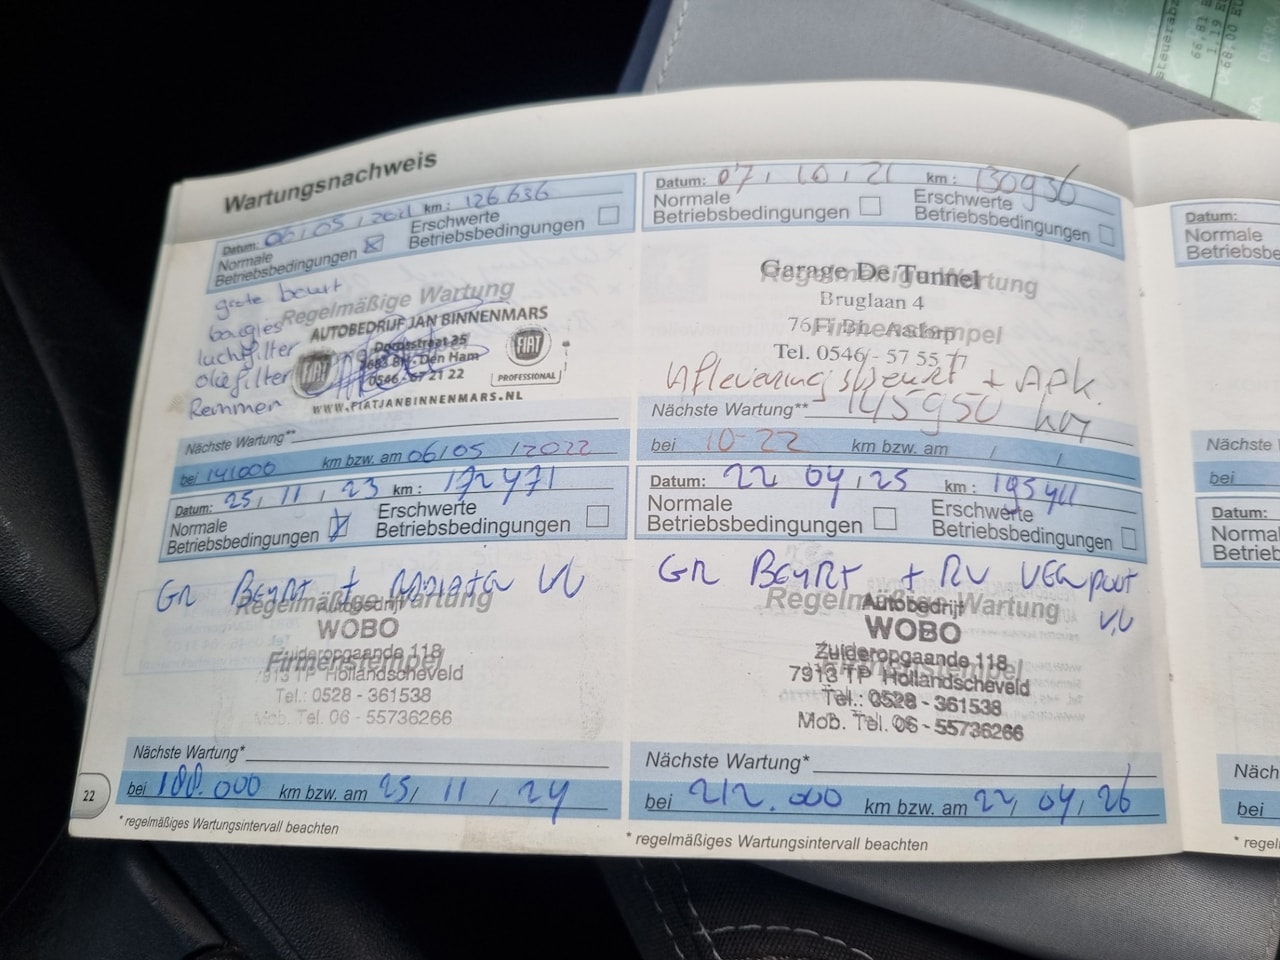 Wartungsnachweis
Datum: 06 / 05 / 2021 km: 126.636
Normale Betriebsbedingungen
Erschwerte Betriebsbedingungen
grote beurt
bougies
luchtfilter
oliefilter
Remmen
Regelmäßige Wartung
AUTOBEDRIJF JAN BINNENMARS
Dorpsstraat 25
Den Ham
21 22
FIAT
FIAT
PROFESSIONAL
WWW.FIATJANBINNENMARS.NL
Nächste Wartung**
bei 141000 km bzw. am 06/05 /2022
Datum: 07 / 10 / 21 km: 130936
Normale Betriebsbedingungen
Erschwerte Betriebsbedingungen
Garage De Tunnel
Regelmäßige Wartung
Bruglaan 4
Firmenstempel
Tel. 0546 - 57 55 77
Afleveringsbeurt + APK.
Nächste Wartung** 145950 km
bei 10-22 km bzw. am / /
Datum: 25 / 11 / 23 km: 172471
Normale Betriebsbedingungen
Erschwerte Betriebsbedingungen
GR BEURT +
Regelmäßige Wartung
Autobedrijf
WOBO
Zuideropgaande 118
Firmenstempel
7913 TP Hollandscheveld
Tel.: 0528 - 361538
Mob. Tel. 06 - 55736266
Nächste Wartung*
bei 188.000 km bzw. am 25/ 11 / 24
* regelmäßiges Wartungsintervall beachten
22
Datum: 22 / 04 / 25 km: 195411
Normale Betriebsbedingungen
Erschwerte Betriebsbedingungen
GR BEURT + RV
Regelmäßige Wartung
Autobedrijf
WOBO
Zuideropgaande 118
7913 TP Hollandscheveld
Tel.: 0528 - 361538
Mob. Tel. 06 - 55736266
Nächste Wartung*
bei 212.000 km bzw. am 22/ 04/ 26
* regelmäßiges Wartungsintervall beachten
Datum:
Nächste
bei
Datum:
bei